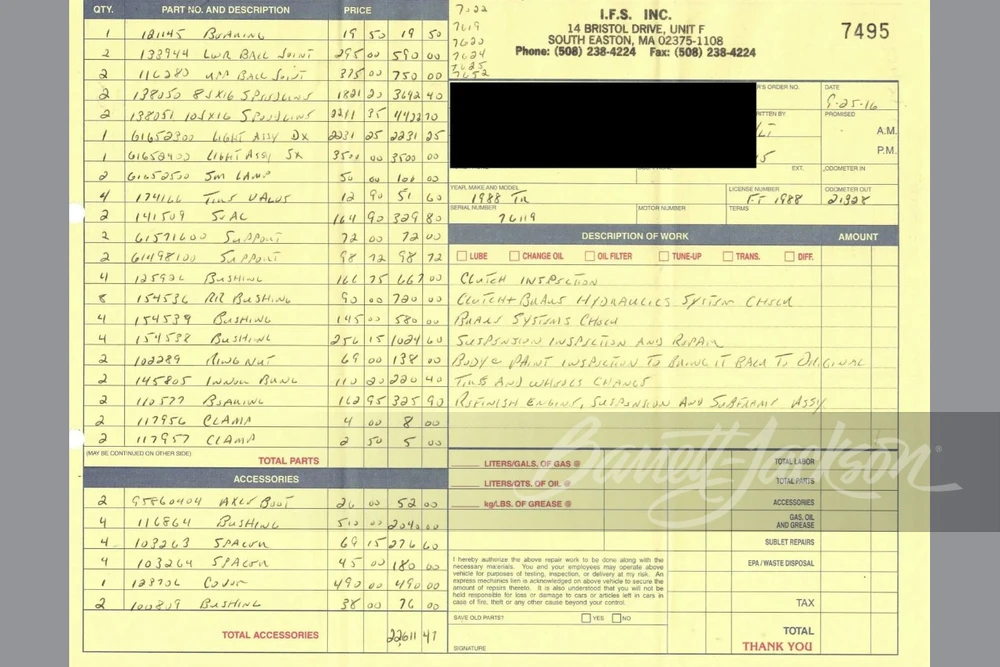 QTY. PART NO. AND DESCRIPTION PRICE
1 121145 BEARING 19 50 19 50
2 133944 LWR BALL JOINT 295 00 590 00
2 116280 UPP BALL JOINT 375 00 750 00
2 138050 8JX16 SPEEDLINE 1821 20 3642 40
2 138051 10JX16 SPEEDLINE 2211 35 4422 70
1 61652300 LIGHT ASSY DX 2231 25 2231 25
1 61652400 LIGHT ASSY SX 3500 00 3500 00
2 61652500 SM LAMP 50 00 100 00
4 174166 TIRE VALVE 12 90 51 60
2 141509 SEAL 164 90 329 80
2 61571600 SUPPORT 72 00 72 00
2 61498100 SUPPORT 98 72 98 72
4 125926 BUSHING 166 75 667 00
8 154536 RR BUSHING 90 00 720 00
4 154539 BUSHING 145 00 580 00
4 154538 BUSHING 256 15 1024 60
2 102289 RING NUT 69 00 138 00
2 145805 INNER BRNG 110 20 220 40
2 110577 BEARING 162 95 325 90
2 117956 CLAMP 4 00 8 00
2 117957 CLAMP 2 50 5 00
(MAY BE CONTINUED ON OTHER SIDE)
TOTAL PARTS
ACCESSORIES
2 95860404 AXLE BOOT 26 00 52 00
4 116864 BUSHING 510 00 2040 00
4 103263 SPACER 69 15 276 60
4 103264 SPACER 45 00 180 00
1 123706 COVER 490 00 490 00
2 100809 BUSHING 38 00 76 00
TOTAL ACCESSORIES 22611 47
7619
7620
7624
7625
7652
I.F.S. INC.
14 BRISTOL DRIVE, UNIT F
SOUTH EASTON, MA 02375-1108
Phone: (508) 238-4224 Fax: (508) 238-4224
7495
R'S ORDER NO. DATE
9-25-16
RITTEN BY PROMISED
A.M.
P.M.
EXT. ODOMETER IN
YEAR, MAKE AND MODEL LICENSE NUMBER ODOMETER OUT
1988 TR FI 1988 21328
SERIAL NUMBER MOTOR NUMBER TERMS
76119
DESCRIPTION OF WORK AMOUNT
LUBE CHANGE OIL OIL FILTER TUNE-UP TRANS. DIFF.
CLUTCH INSPECTION
CLUTCH + BRAKE HYDRAULICS SYSTEM CHECK
BRAKE SYSTEMS CHECK
SUSPENSION INSPECTION AND REPAIR
BODY & PAINT INSPECTION TO BRING IT BACK TO ORIGINAL
TIRES AND WHEELS CHANGE
REFINISH ENGINE, SUSPENSION AND SUBFRAME ASSY
Barrett-Jackson
LITERS/GALS. OF GAS @
LITERS/QTS. OF OIL @
kg/LBS. OF GREASE @
TOTAL LABOR
TOTAL PARTS
ACCESSORIES
GAS, OIL
AND GREASE
SUBLET REPAIRS
EPA / WASTE DISPOSAL
TAX
TOTAL
THANK YOU
I hereby authorize the above repair work to be done along with the
necessary materials. You and your employees may operate above
vehicle for purposes of testing, inspection, or delivery at my risk. An
express mechanics lien is acknowledged on above vehicle to secure the
amount of repairs thereto. It is also understood that you will not be
held responsible for loss or damage to cars or articles left in cars in
case of fire, theft or any other cause beyond your control.
SAVE OLD PARTS? YES NO
SIGNATURE